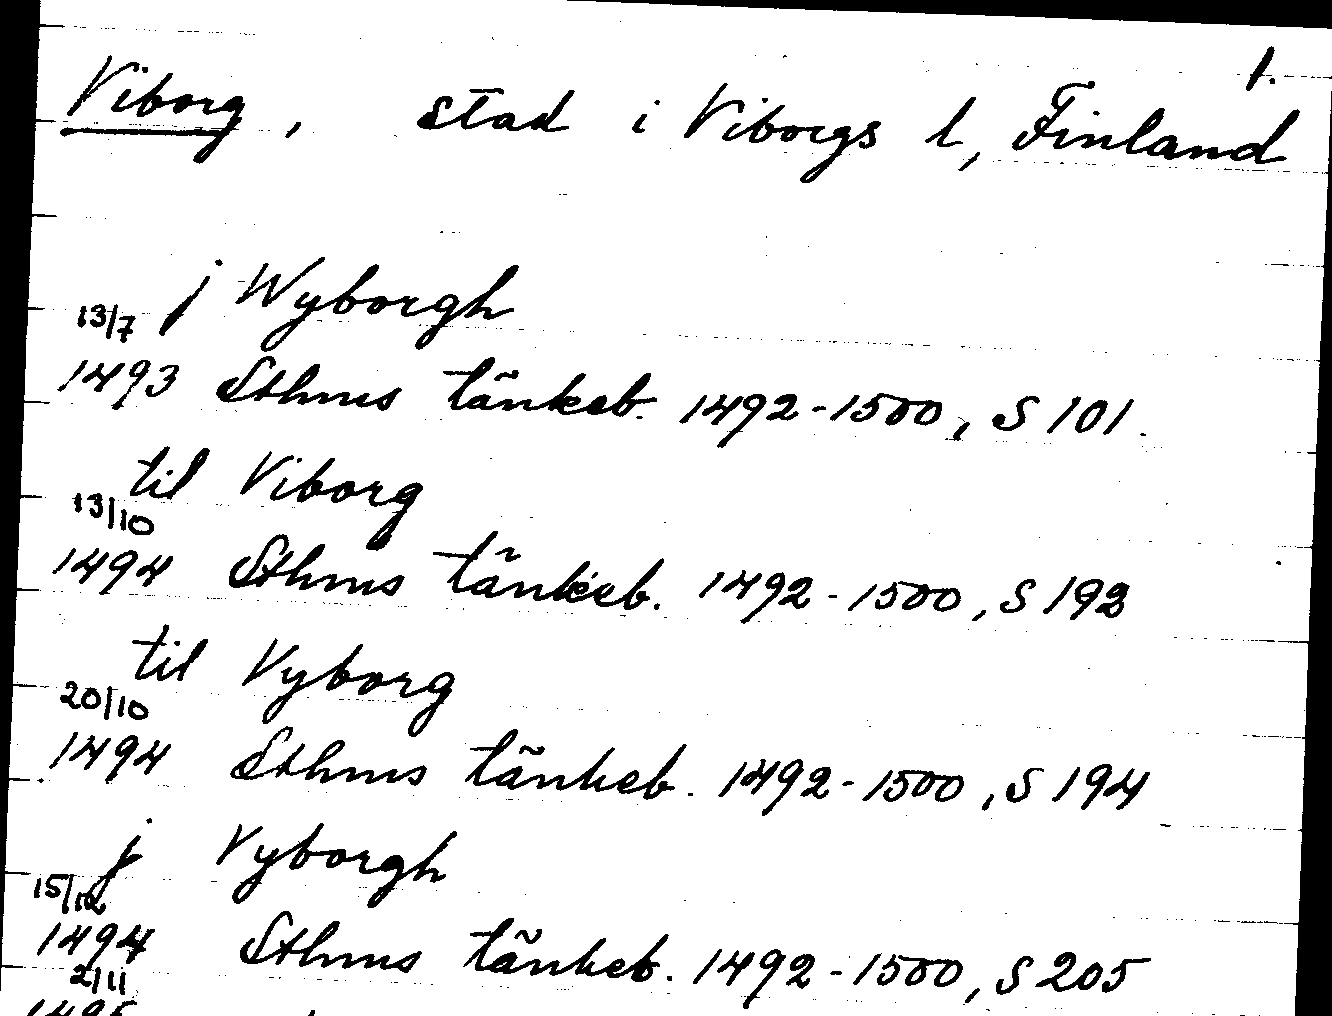 1.
Viborg, stad i Viborgs l, Finland
j Wyborgh
13/7
1493 Sthms tänkeb. 1492-1500, S 101.
til Viborg
13/10
1494 Sthms tänkeb. 1492-1500, S 192
til Vyborg
20/10
1494 Sthms tänkeb. 1492-1500, S 194
j Vyborgh
15/12
1494 Sthms tänkeb. 1492-1500, S 205
2/11
1495